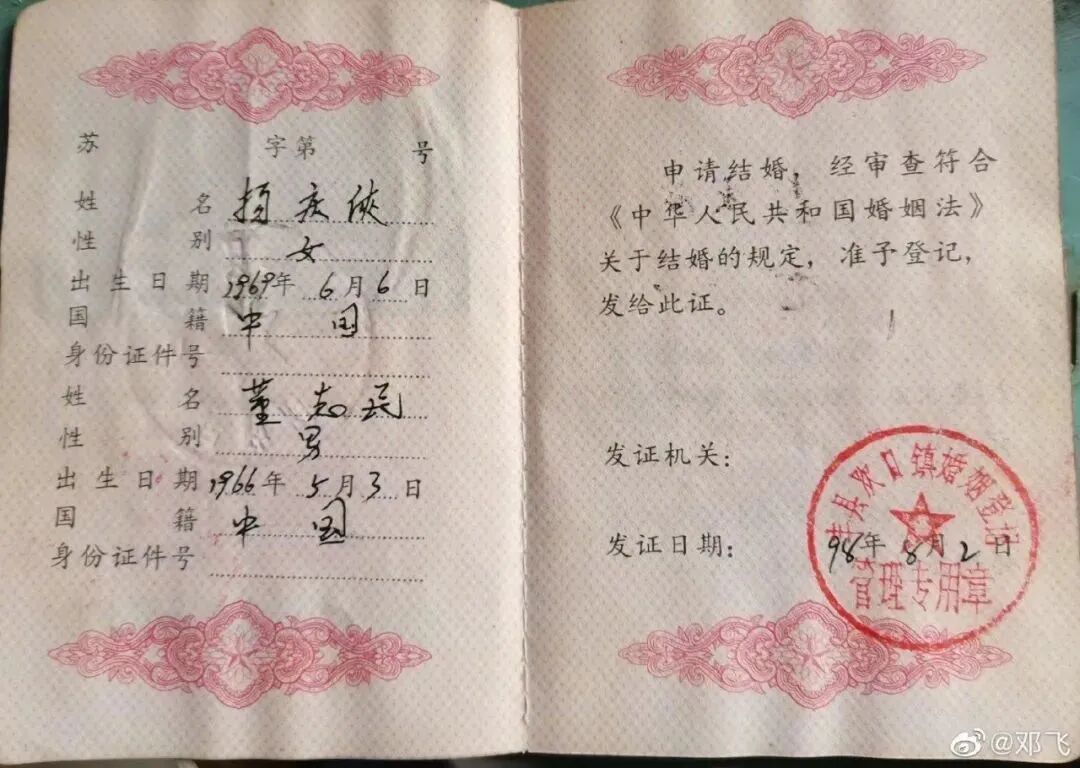 苏 字第 号
姓 名 杨庆侠
性 别 女
出生日期 1969年 6月 6日
国 籍 中 国
身份证件号
姓 名 董志民
性 别 男
出生日期 1966年 5月 3日
国 籍 中 国
身份证件号
申请结婚，经审查符合
《中华人民共和国婚姻法》
关于结婚的规定，准予登记，
发给此证。
发证机关：
丰县欢口镇婚姻登记
管理专用章
发证日期： 98年 8月 2日
@邓飞